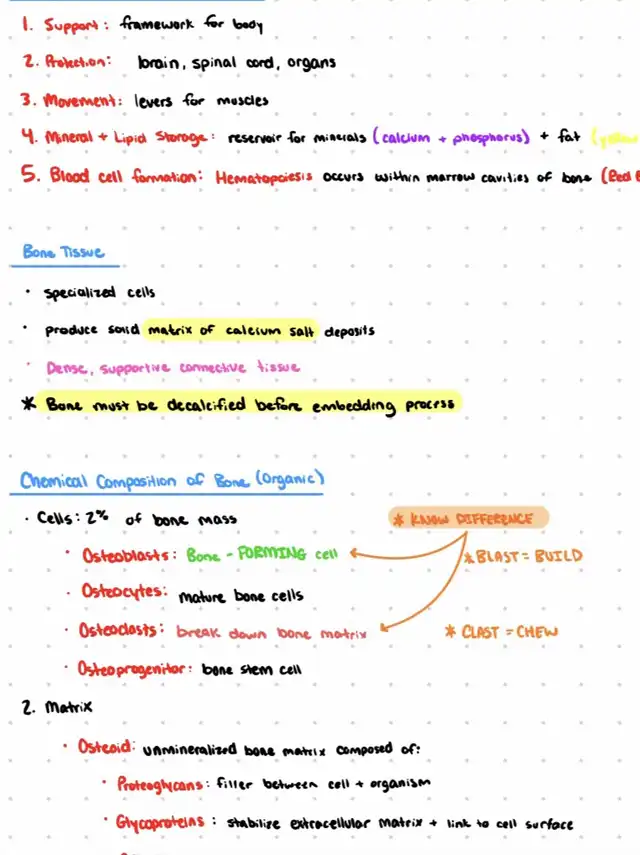 1. Support: framework for body
2. Protection: brain, spinal cord, organs
3. Movement: levers for muscles
4. Mineral + Lipid Storage: reservoir for minerals (calcium + phosphorus) + fat
5. Blood cell formation: Hematopoiesis occurs within marrow cavities of bone (Red
Bone Tissue
• specialized cells
• produce solid matrix of calcium salt deposits
• Dense, supportive connective tissue
* Bone must be decalcified before embedding process
Chemical Composition of Bone (Organic)
• Cells: 2% of bone mass
* KNOW DIFFERENCE
• Osteoblasts: Bone - FORMING cell
* BLAST = BUILD
• Osteocytes: mature bone cells
• Osteoclasts: break down bone matrix
* CLAST = CHEW
• Osteoprogenitor: bone stem cell
2. Matrix
• Osteoid: unmineralized bone matrix composed of:
• Proteoglycans: filler between cell + organism
• Glycoproteins: stabilize extracellular matrix + link to cell surface